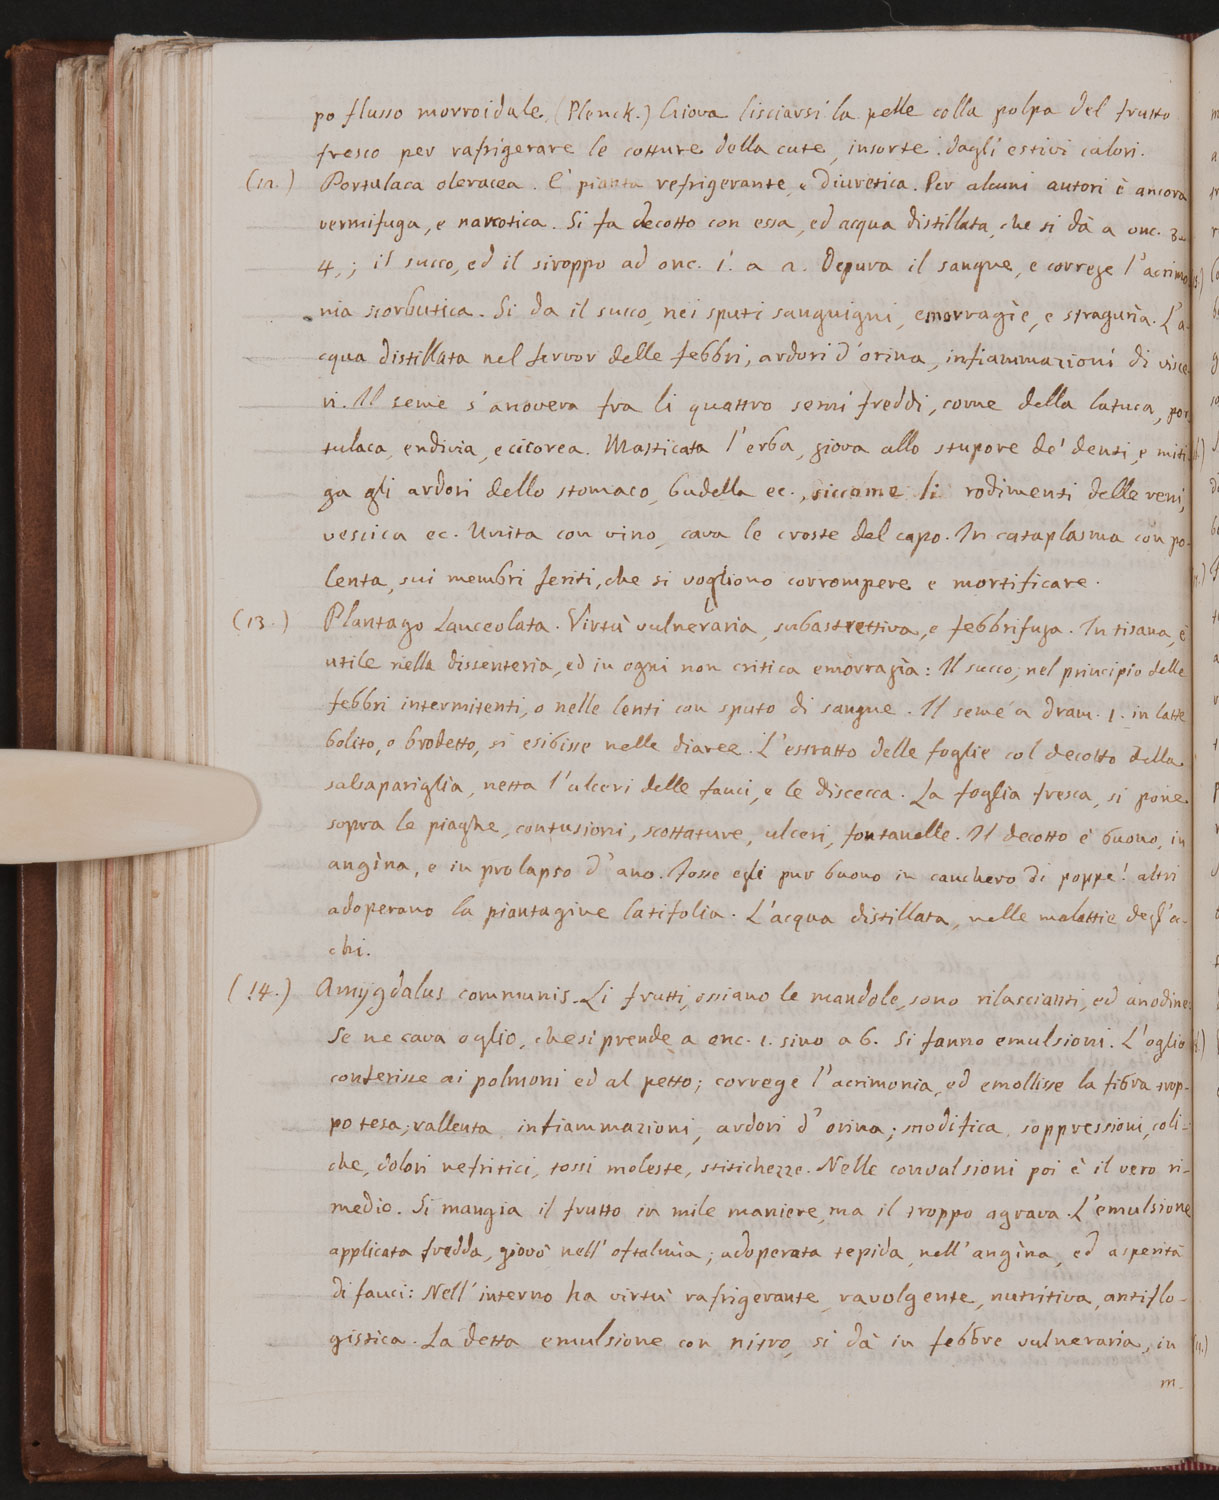 po flusso morroidale. (Plenck.) Giova lisciarsi la pelle colla polpa del frutto
fresco per rafrigerare le cotture della cute, insorte dagli estivi calori.
(12.) Portulaca oleracea. E' pianta refrigerante, e diuretica. Per alcuni autori è ancora
vermifuga, e narcotica. Si fa decotto con essa, ed acqua distillata, che si dà a onc. 3-
4,; il succo, ed il siroppo ad onc. 1. a 2. Depura il sangue, e correge l'acrimo
nia scorbutica. Si da il succo, nei sputi sanguigni, emorragìe, e stragurìa. L'a-
cqua distillata nel fervor delle febbri, ardori d'orina, infiammazioni di visce
ri. Il seme s'anovera fra li quattro semi freddi, come della latuca, por-
tulaca, endivia, e cicorea. Masticata l'erba, giova allo stupore de' denti, e miti
ga gli ardori dello stomaco, budella ec., siccome li rodimenti delle reni,
vescica ec. Unita con vino, cava le croste del capo. In cataplasma con po-
lenta, sui membri feriti, che si vogliono corrompere e mortificare.
(13.) Plantago Lanceolata. Virtù vulneraria, subastrettiva, e febbrifuga. In tisana, è
utile nella dissenteria, ed in ogni non critica emorragìa: Il succo, nel principio delle
febbri intermitenti, o nelle lenti con sputo di sangue. Il seme a dram. 1. in latte
bolito, o brodetto, si esibisse nelle diaree. L'estratto delle foglie col decotto della
salsapariglia, netta l'ulceri delle fauci, e le discecca. La foglia fresca, si pone
sopra le piaghe, contusioni, scottature, ulceri, fontanelle. Il decotto è buono, in
angìna, e in prolapso d'ano. Fosse egli pur buono in canchero di poppe! altri
adoperano la piantagine latifolia. L'acqua distillata, nelle malattie degl'o-
chi.
(14.) Amygdalus communis. Li frutti, ossiano le mandole, sono rilascianti, ed anodine.
Se ne cava oglio, che si prende a onc. 1. sino a 6. Si fanno emulsioni. L'oglio
conferisse ai polmoni ed al petto; correge l'acrimonia, ed emollisse la fibra trop-
po tesa; rallenta infiammazioni, ardori d'orina; modifica soppressioni, coli-
che, dolori nefritici, tossi moleste, stitichezze. Nelle convulsioni poi è il vero ri-
medio. Si mangia il frutto in mile maniere, ma il troppo agrava. L'emulsione
applicata fredda, giovò nell'oftalmìa; adoperata tepida, nell'angìna, ed asperità
di fauci: Nell'interno ha virtù rafrigerante, ravolgente, nutritiva, antiflo-
gistica. La detta emulsione con nitro, si dà in febbre vulneraria, in
m-